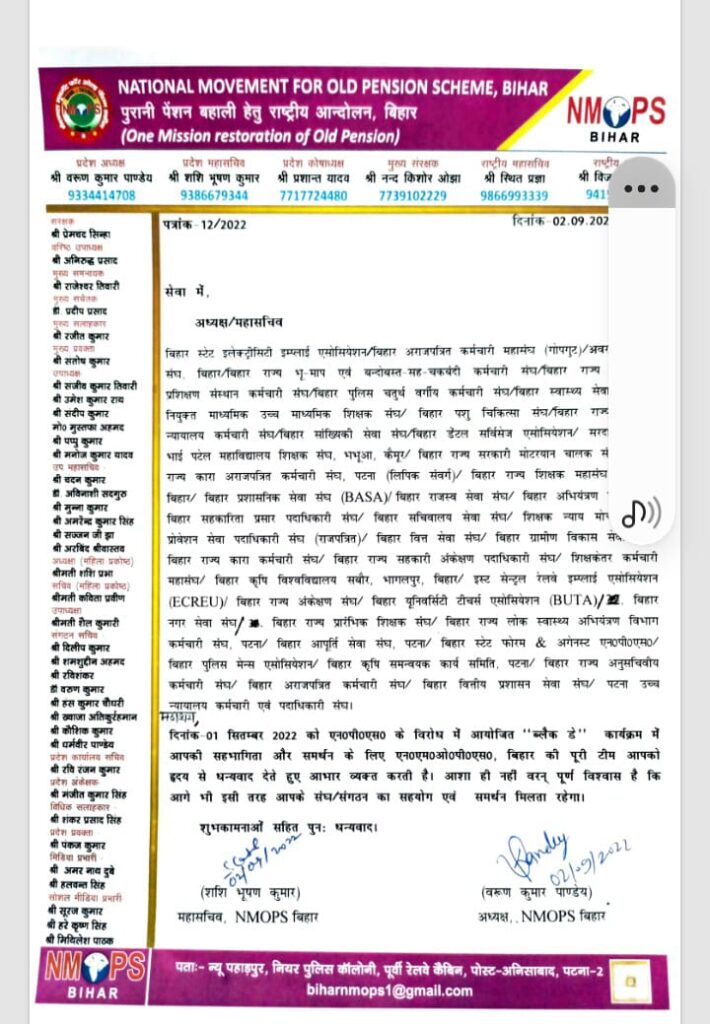 NATIONAL MOVEMENT FOR OLD PENSION SCHEME, BIHAR
पुरानी पेंशन बहाली हेतु राष्ट्रीय आन्दोलन, बिहार
(One Mission restoration of Old Pension)
NMOPS
BIHAR
प्रदेश अध्यक्ष
श्री वरूण कुमार पाण्डेय
9334414708
प्रदेश महासचिव
श्री शशि भूषण कुमार
9386679344
प्रदेश कोषाध्यक्ष
श्री प्रशान्त यादव
7717724480
मुख्य संरक्षक
श्री नन्द किशोर ओझा
7739102229
राष्ट्रीय महासचिव
श्री स्थित प्रज्ञा
9866993339
राष्ट्रीय
श्री
संरक्षक
श्री प्रेमचंद सिन्हा
वरिष्ठ उपाध्यक्ष
श्री अनिरुद्ध प्रसाद
मुख्य समन्वयक
श्री राजेश्वर तिवारी
मुख्य सचेतक
डॉ. प्रदीप प्रसाद
मुख्य सलाहकार
श्री रंजीत कुमार
मुख्य प्रवक्ता
श्री संतोष कुमार
उपाध्यक्ष
श्री संजीव कुमार तिवारी
श्री उमेश कुमार राय
श्री संदीप कुमार
मो० मुस्तफा अहमद
श्री पप्पु कुमार
श्री मनोज कुमार यादव
उप महासचिव
श्री चंदन कुमार
डॉ. अविनाशी सदगुरु
श्री मुन्ना कुमार
श्री अमरेन्द्र कुमार सिंह
श्री सज्जन जी झा
श्री अरविंद श्रीवास्तव
अध्यक्षा (महिला प्रकोष्ठ)
श्रीमती शशि प्रभा
सचिव (महिला प्रकोष्ठ)
श्रीमती कविता प्रवीण
उपाध्यक्षा
श्रीमती शैल कुमारी
संगठन सचिव
श्री दिलीप कुमार
श्री शमशुद्दीन अहमद
श्री रविशंकर
डॉ वरुण कुमार
श्री हंस कुमार चौधरी
श्री ख्वाजा अतिकुर्रहमान
श्री कौशिक कुमार
श्री धर्मवीर पाण्डेय
प्रदेश कार्यालय सचिव
श्री रवि रंजन कुमार
प्रदेश अंकेक्षक
श्री मंजीत कुमार सिंह
विधिक सलाहकार
श्री शंकर प्रसाद सिंह
प्रदेश प्रवक्ता
श्री पंकज कुमार
मिडिया प्रभारी
श्री अमर नाथ दुबे
श्री हलवन्त सिंह
सोशल मीडिया प्रभारी
श्री सूरज कुमार
श्री हरे कृष्ण सिंह
श्री मिथिलेश पाठक
पत्रांक-12/2022
दिनांक-02.09.202
सेवा में,
अध्यक्ष/महासचिव
बिहार स्टेट इलेक्ट्रीसिटी इम्प्लाई एसोसियेशन/बिहार अराजपत्रित कर्मचारी महासंघ (गोपगुट)/अवर
संघ, बिहार/बिहार राज्य भू-माप एवं बन्दोबस्त-सह-चकबंदी कर्मचारी संघ/बिहार राज्य
प्रशिक्षण संस्थान कर्मचारी संघ/बिहार पुलिस चतुर्थ वर्गीय कर्मचारी संघ/बिहार स्वास्थ्य सेवा
नियुक्त माध्यमिक उच्च माध्यमिक शिक्षक संघ/ बिहार पशु चिकित्सा संघ/बिहार राज्य
न्यायालय कर्मचारी संघ/बिहार सांख्यिकी सेवा संघ/बिहार डेंटल सर्विसेज एसोसियेशन/
भाई पटेल महाविद्यालय शिक्षक संघ, भभूआ, कैमूर/ बिहार राज्य सरकारी मोटरयान चालक
राज्य कारा अराजपत्रित कर्मचारी संघ, पटना (लिपिक संवर्ग)/ बिहार राज्य शिक्षक महासंघ
बिहार/ बिहार प्रशासनिक सेवा संघ (BASA)/बिहार राजस्व सेवा संघ/ बिहार अभियंत्रण
बिहार सहकारिता प्रसार पदाधिकारी संघ/ बिहार सचिवालय सेवा संघ/ शिक्षक न्याय
प्रोवेशन सेवा पदाधिकारी संघ (राजपत्रित)/ बिहार वित्त सेवा संघ/ बिहार ग्रामीण विकास
बिहार राज्य कारा कर्मचारी संघ/ बिहार राज्य सहकारी अंकेक्षण पदाधिकारी संघ/ शिक्षकेतर कर्मचारी
महासंघ/ बिहार कृषि विश्वविद्यालय सबौर, भागलपुर, बिहार/ इस्ट सेन्ट्रल रेलवे इम्प्लाई एसोसियेशन
(ECREU)/ बिहार राज्य अंकेक्षण संघ/ बिहार यूनिवर्सिटी टीचर्स एसोसियेशन (BUTA)/ बिहार
नगर सेवा संघ/ बिहार राज्य प्रारंभिक शिक्षक संघ/ बिहार राज्य लोक स्वास्थ्य अभियंत्रण विभाग
कर्मचारी संघ, पटना/ बिहार आपूर्ति सेवा संघ, पटना/ बिहार स्टेट फोरम & अगेनस्ट एन०पी०एस०/
बिहार पुलिस मेन्स एसोसियेशन/ बिहार कृषि समन्वयक कार्य समिति, पटना/ बिहार राज्य अनुसचिवीय
कर्मचारी संघ/ बिहार अराजपत्रित कर्मचारी संघ/ बिहार वित्तीय प्रशासन सेवा संघ/ पटना उच्च
न्यायालय कर्मचारी एवं पदाधिकारी संघ।
महाशय,
दिनांक-01 सितम्बर 2022 को एन०पी०एस० के विरोध में आयोजित "ब्लैक डे" कार्यक्रम में
आपकी सहभागिता और समर्थन के लिए एन०एम०ओ०पी०एस०, बिहार की पूरी टीम आपको
हृदय से धन्यवाद देते हुए आभार व्यक्त करती है। आशा ही नहीं वरन् पूर्ण विश्वास है कि
आगे भी इसी तरह आपके संघ/संगठन का सहयोग एवं समर्थन मिलता रहेगा।
शुभकामनाओं सहित पुनः धन्यवाद।
02/09/2022
(शशि भूषण कुमार)
महासचिव, NMOPS बिहार
Pandey
02/09/2022
(वरूण कुमार पाण्डेय)
अध्यक्ष,, NMOPS बिहार
NMOPS
BIHAR
पताः- न्यू पहाड़पुर, नियर पुलिस कॉलोनी, पूर्वी रेलवे कैबिन, पोस्ट-अनिसाबाद, पटना-2
biharnmops1@gmail.com